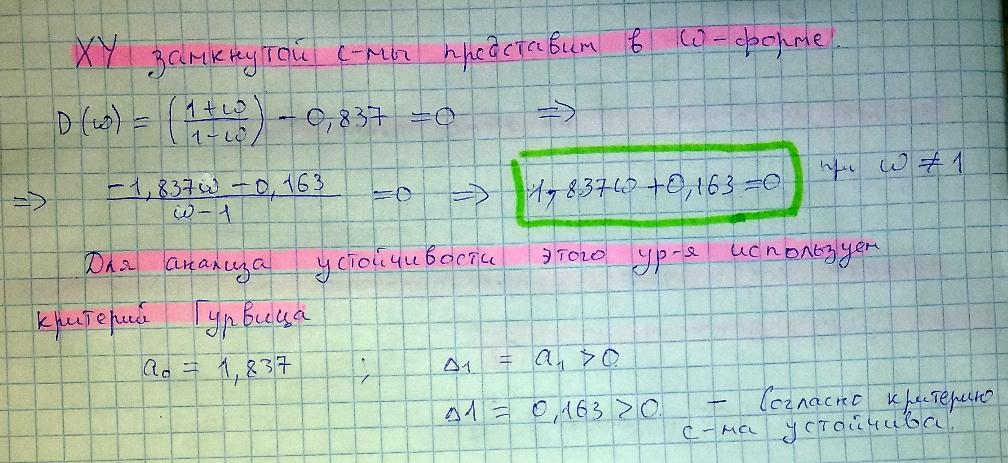 ХУ замкнутой с-мы представим в ω-форме.
D(ω) = ((1+ω)/(1-ω)) - 0,837 = 0 =>
=> (-1,837ω - 0,163)/(ω-1) = 0 => 1,837ω + 0,163 = 0 при ω ≠ 1
Для анализа устойчивости этого ур-я используем
критерий Гурвица
a₀ = 1,837 ; Δ1 = a₁ > 0
Δ1 = 0,163 > 0. - Согласно критерию
с-ма устойчива.